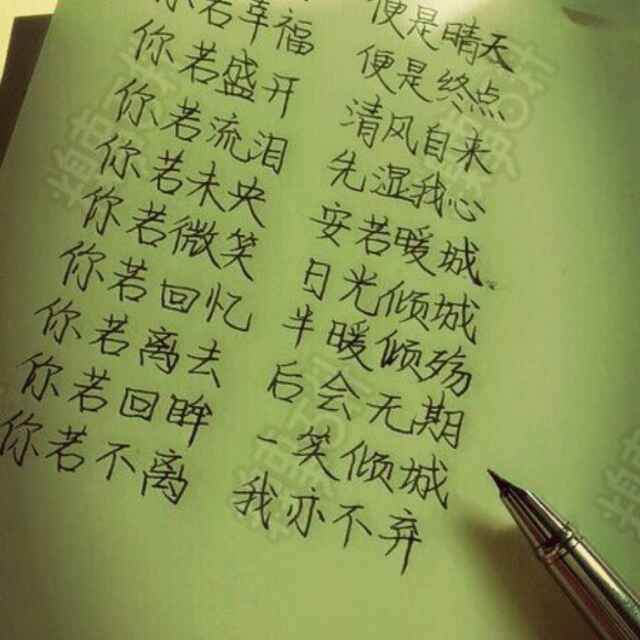 便是晴天
你若幸福 便是终点
你若盛开 清风自来
你若流泪 先湿我心
你若未央 安若暖城
你若微笑 日光倾城
你若回忆 半暖倾殇
你若离去 后会无期
你若回眸 一笑倾城
你若不离 我亦不弃